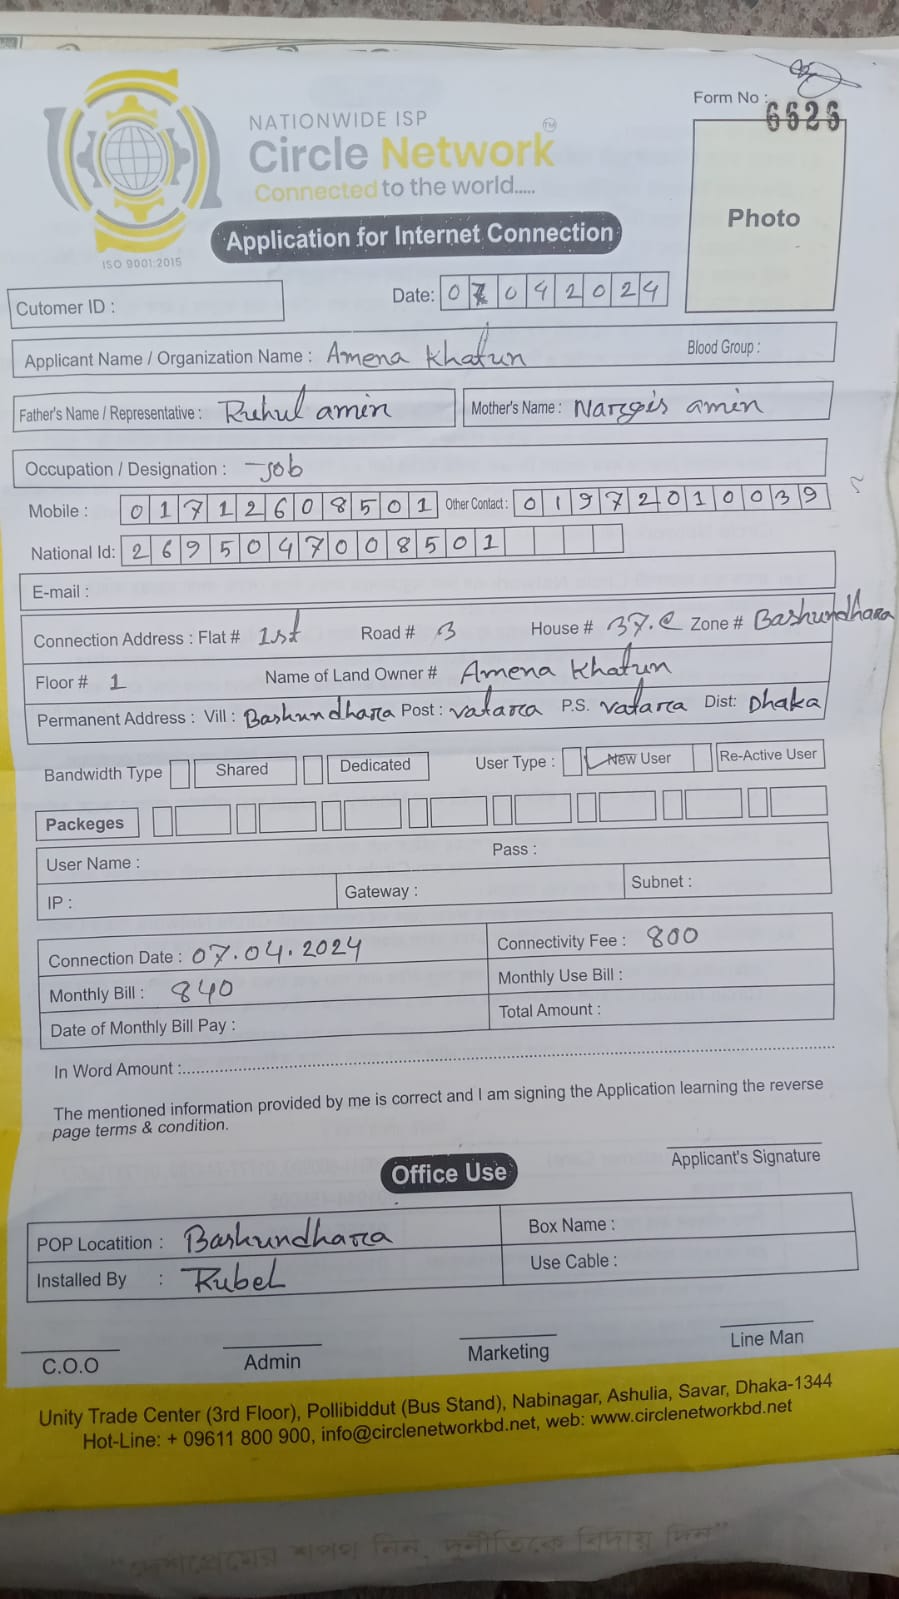 Form No : 6626
NATIONWIDE ISP
Circle Network TM
Connected to the world.....
Photo
ISO 9001:2015
Application for Internet Connection
Cutomer ID :
Date: 07042024
Applicant Name / Organization Name : Amena Khatun Blood Group :
Father's Name / Representative : Ruhul amin Mother's Name : Nargis amin
Occupation / Designation : Job
Mobile : 01712608501 Other Contact : 01972010039
National Id: 2695047008501
E-mail :
Connection Address : Flat # 1st Road # 3 House # 37.C Zone # Bashundhara
Floor # 1 Name of Land Owner # Amena Khatun
Permanent Address : Vill : Bashundhara Post : vatara P.S. vatara Dist: Dhaka
Bandwidth Type Shared Dedicated User Type : New User Re-Active User
Packeges
User Name : Pass :
IP : Gateway : Subnet :
Connection Date : 07.04.2024 Connectivity Fee : 800
Monthly Bill : 840 Monthly Use Bill :
Date of Monthly Bill Pay : Total Amount :
In Word Amount :
The mentioned information provided by me is correct and I am signing the Application learning the reverse
page terms & condition.
Applicant's Signature
Office Use
POP Locatition : Bashundhara Box Name :
Installed By : Rubel Use Cable :
C.O.O Admin Marketing Line Man
Unity Trade Center (3rd Floor), Pollibiddut (Bus Stand), Nabinagar, Ashulia, Savar, Dhaka-1344
Hot-Line: + 09611 800 900, info@circlenetworkbd.net, web: www.circlenetworkbd.net
"দেশপ্রেমের শপথ নিন, দুর্নীতিকে বিদায় দিন"